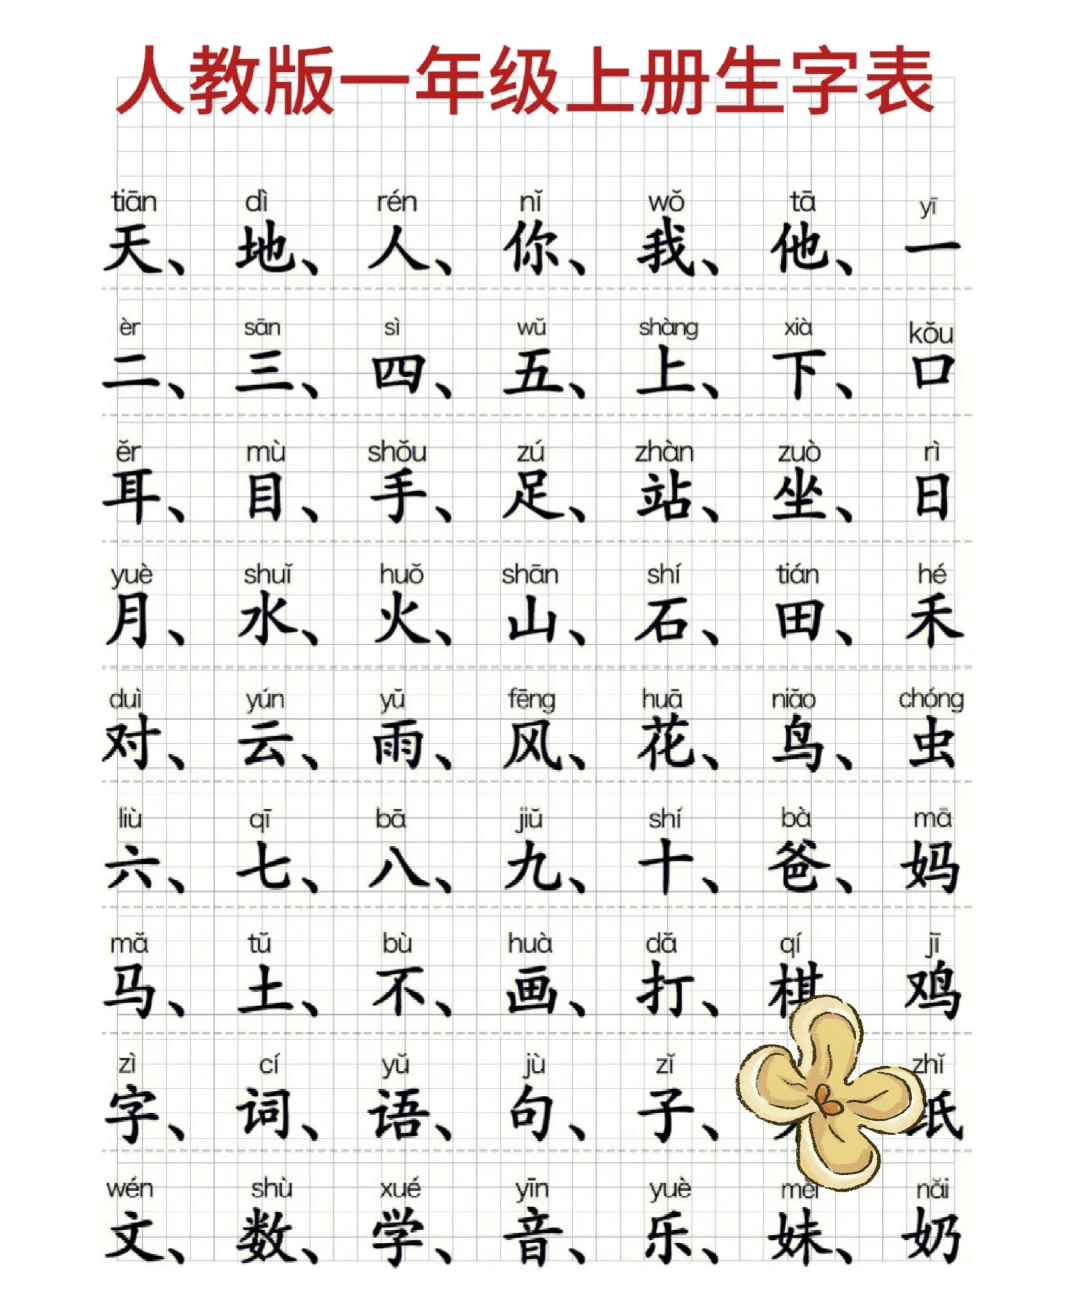 人教版一年级上册生字表
tiān dì rén nǐ wǒ tā yī
天、地、人、你、我、他、一
èr sān sì wǔ shàng xià kǒu
二、三、四、五、上、下、口
ěr mù shǒu zú zhàn zuò rì
耳、目、手、足、站、坐、日
yuè shuǐ huǒ shān shí tián hé
月、水、火、山、石、田、禾
duì yún yǔ fēng huā niǎo chóng
对、云、雨、风、花、鸟、虫
liù qī bā jiǔ shí bà mā
六、七、八、九、十、爸、妈
mǎ tǔ bù huà dǎ qí jī
马、土、不、画、打、棋 鸡
zì cí yǔ jù zǐ zhǐ
字、词、语、句、子、 纸
wén shù xué yīn yuè mèi nǎi
文、数、学、音、乐、妹、奶